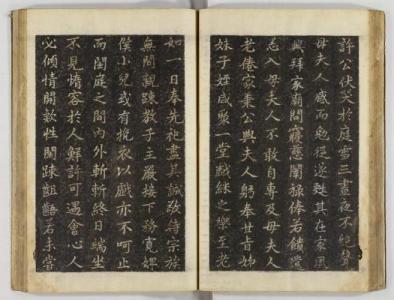 許公伏哭於庭雪三晝夜不絶聲
母夫人感而勉從逑甦其在家風
興拜家廟間寢慈闈祿俸若饋遺
忘入母夫人不敢自專及母夫人
老倦家棄公與夫人躬奉甘旨姊
妹子姪咸聚一堂戲綵之樂至老
如一日奉先祀盡其誠敬待宗族
無間親踈教子主嚴接下務寬婢
僕小兒或有挽衣以戲亦不呵止
而閨庭之間內外斬斬終日端坐
不見惰容於人鮮許可遇會心人
必傾情開欵性闊踈齟齬若未嘗